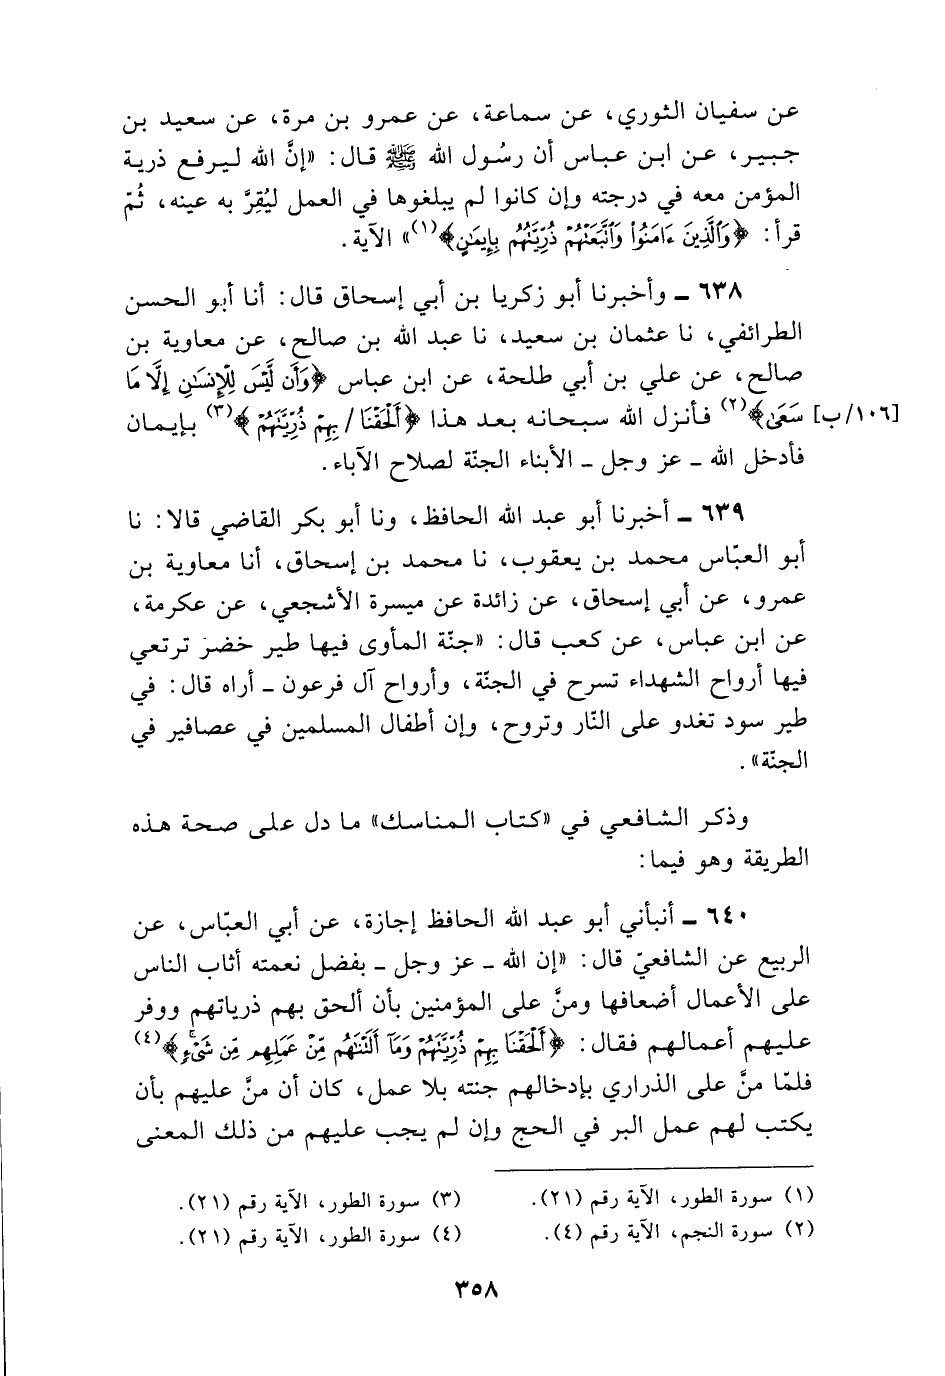 عن سفيان الثوري، عن سماعة، عن عمرو بن مرة، عن سعيد بن
جبير، عن ابن عباس أن رسُول الله ﷺ قال: «إنَّ الله ليرفع ذرية
المؤمن معه في درجته وإن كانوا لم يبلغوها في العمل ليُقِرَّ به عينه، ثُمّ
قرأ: ﴿وَٱلَّذِينَ ءَامَنُواْ وَٱتَّبَعَتْهُمْ ذُرِّيَّتُهُم بِإِيمَـٰنٍ﴾(١)» الآية.
٦٣٨ ـ وأخبرنا أبو زكريا بن أبي إسحاق قال: أنا أبو الحسن
الطرائفي، نا عثمان بن سعيد، نا عبد الله بن صالح، عن معاوية بن
صالح، عن علي بن أبي طلحة، عن ابن عباس ﴿وَأَن لَّيْسَ لِلْإِنسَـٰنِ إِلَّا مَا
[١٠٦/ب] سَعَىٰ﴾(٢) فأنزل الله سبحانه بعد هذا ﴿أَلْحَقْنَا / بِهِمْ ذُرِّيَّتَهُمْ﴾(٣) بإيمان
فأدخل الله ـ عز وجل ـ الأبناء الجنّة لصلاح الآباء.
٦٣٩ ـ أخبرنا أبو عبد الله الحافظ، ونا أبو بكر القاضي قالا: نا
أبو العبّاس محمد بن يعقوب، نا محمد بن إسحاق، أنا معاوية بن
عمرو، عن أبي إسحاق، عن زائدة عن ميسرة الأشجعي، عن عكرمة،
عن ابن عباس، عن كعب قال: «جنّة المأوى فيها طير خضر ترتعي
فيها أرواح الشهداء تسرح في الجنّة، وأرواح آل فرعون ـ أراه قال: في
طير سود تغدو على النّار وتروح، وإن أطفال المسلمين في عصافير في
الجنّة».
وذكر الشافعي في «كتاب المناسك» ما دل على صحة هذه
الطريقة وهو فيما:
٦٤٠ ـ أنبأني أبو عبد الله الحافظ إجازة، عن أبي العبّاس، عن
الربيع عن الشافعيّ قال: «إن الله ـ عز وجل ـ بفضل نعمته أثاب الناس
على الأعمال أضعافها ومنَّ على المؤمنين بأن ألحق بهم ذرياتهم ووفر
عليهم أعمالهم فقال: ﴿أَلْحَقْنَا بِهِمْ ذُرِّيَّتَهُمْ وَمَآ أَلَتْنَـٰهُم مِّنْ عَمَلِهِم مِّن شَىْءٍ﴾(٤)
فلمّا منَّ على الذراري بإدخالهم جنته بلا عمل، كان أن منَّ عليهم بأن
يكتب لهم عمل البر في الحج وإن لم يجب عليهم من ذلك المعنى
(١) سورة الطور، الآية رقم (٢١).
(٢) سورة النجم، الآية رقم (٤).
(٣) سورة الطور، الآية رقم (٢١).
(٤) سورة الطور، الآية رقم (٢١).
٣٥٨